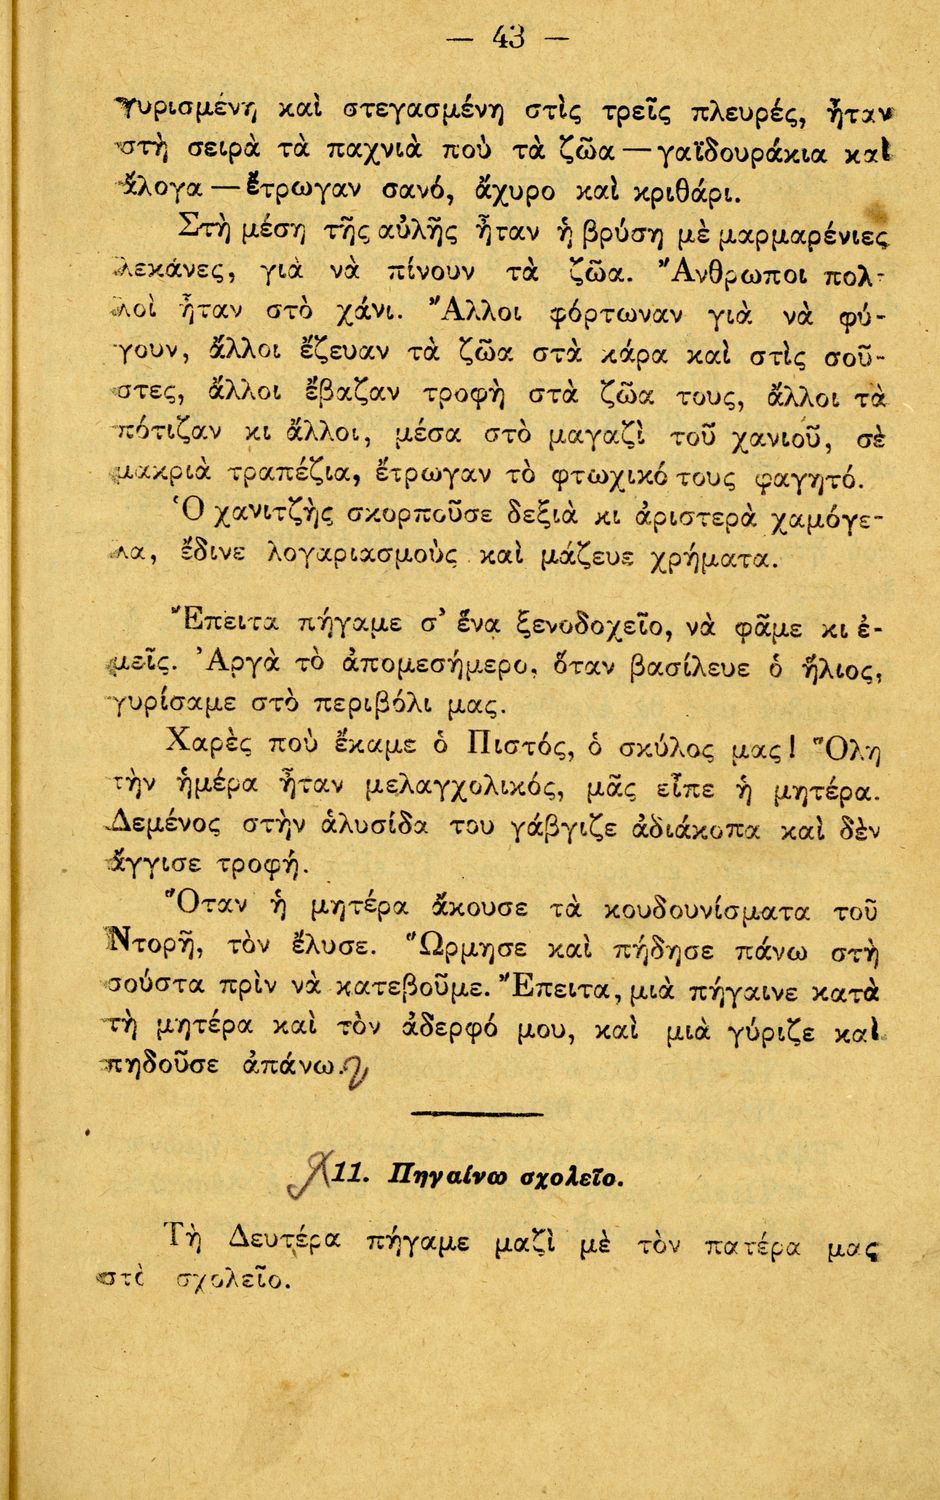 — 43 —
γυρισμένη καὶ στεγασμένη στὶς τρεῖς πλευρές, ἦταν
στὴ σειρὰ τὰ παχνιὰ ποὺ τὰ ζῶα — γαϊδουράκια καὶ
ἄλογα — ἔτρωγαν σανό, ἄχυρο καὶ κριθάρι.
Στὴ μέση τῆς αὐλῆς ἦταν ἡ βρύση μὲ μαρμαρένιες
λεκάνες, γιὰ νὰ πίνουν τὰ ζῶα. Ἄνθρωποι πολ-
λοὶ ἦταν στὸ χάνι. Ἄλλοι φόρτωναν γιὰ νὰ φύ-
γουν, ἄλλοι ἔζευαν τὰ ζῶα στὰ κάρα καὶ στὶς σοῦ-
στες, ἄλλοι ἔβαζαν τροφὴ στὰ ζῶα τους, ἄλλοι τὰ
πότιζαν κι ἄλλοι, μέσα στὸ μαγαζὶ τοῦ χανιοῦ, σὲ
μακριὰ τραπέζια, ἔτρωγαν τὸ φτωχικό τους φαγητό.
Ὁ χανιτζὴς σκορποῦσε δεξιὰ κι ἀριστερὰ χαμόγε-
λα, ἔδινε λογαριασμοὺς καὶ μάζευε χρήματα.
Ἔπειτα πήγαμε σ' ἕνα ξενοδοχεῖο, νὰ φᾶμε κι ἐ-
μεῖς. Ἀργὰ τὸ ἀπομεσήμερο, ὅταν βασίλευε ὁ ἥλιος,
γυρίσαμε στὸ περιβόλι μας.
Χαρὲς ποὺ ἔκαμε ὁ Πιστός, ὁ σκύλος μας! Ὅλη
τὴν ἡμέρα ἦταν μελαγχολικός, μᾶς εἶπε ἡ μητέρα.
Δεμένος στὴν ἁλυσίδα του γάβγιζε ἀδιάκοπα καὶ δὲν
ἄγγισε τροφή.
Ὅταν ἡ μητέρα ἄκουσε τὰ κουδουνίσματα τοῦ
Ντορῆ, τὸν ἔλυσε. Ὥρμησε καὶ πήδησε πάνω στὴ
σούστα πρὶν νὰ κατεβοῦμε. Ἔπειτα, μιὰ πήγαινε κατὰ
τὴ μητέρα καὶ τὸν ἀδερφό μου, καὶ μιὰ γύριζε καὶ
πηδοῦσε ἀπάνω.
11. Πηγαίνω σχολεῖο.
Τὴ Δευτέρα πήγαμε μαζὶ μὲ τὸν πατέρα μας
στὸ σχολεῖο.